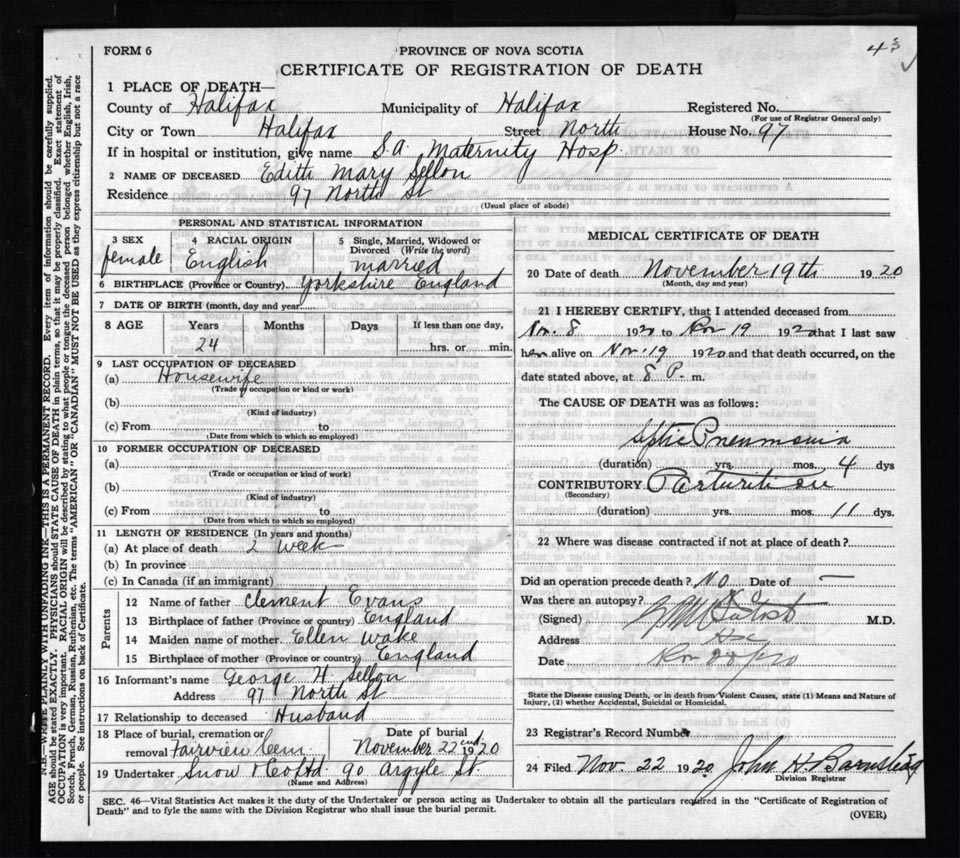 FORM 6
PROVINCE OF NOVA SCOTIA
43
CERTIFICATE OF REGISTRATION OF DEATH
1 PLACE OF DEATH—
County of Halifax Municipality of Halifax Registered No.
(For use of Registrar General only)
City or Town Halifax Street North House No. 97
If in hospital or institution, give name S.A. Maternity Hosp.
2 NAME OF DECEASED Edith Mary Sellon
Residence 97 North St
(Usual place of abode)
PERSONAL AND STATISTICAL INFORMATION
3 SEX female
4 RACIAL ORIGIN English
5 Single, Married, Widowed or Divorced (Write the word) married
6 BIRTHPLACE (Province or Country) Yorkshire England
7 DATE OF BIRTH (month, day and year)
8 AGE Years Months Days If less than one day,
24 hrs. or min.
9 LAST OCCUPATION OF DECEASED
(a) Housewife
(Trade or occupation or kind or work)
(b)
(Kind of industry)
(c) From to
(Date from which to which so employed)
10 FORMER OCCUPATION OF DECEASED
(a)
(Trade or occupation or kind or work)
(b)
(Kind of industry)
(c) From to
(Date from which to which so employed)
11 LENGTH OF RESIDENCE (in Years and months)
(a) At place of death 2 week
(b) In province
(c) In Canada (if an immigrant)
Parents
12 Name of father Clement Evans
13 Birthplace of father (Province or country) England
14 Maiden name of mother Ellen Wake
15 Birthplace of mother (Province or country) England
16 Informant's name George H Sellon
Address 97 North St
17 Relationship to deceased Husband
18 Place of burial, cremation or removal Fairview Cem
Date of burial November 22nd 1920
19 Undertaker Snow & Co Ltd 90 Argyle St.
(Name and Address)
MEDICAL CERTIFICATE OF DEATH
20 Date of death November 19th 1920
(Month, day and year)
21 I HEREBY CERTIFY, that I attended deceased from
Nov. 8 1920 to Nov 19 1920 that I last saw
her alive on Nov. 19 1920 and that death occurred, on the
date stated above, at 8 P. m.
The CAUSE OF DEATH was as follows:
Septic Pneumonia
(duration) yrs. mos. 4 dys
CONTRIBUTORY Parturition
(Secondary)
(duration) yrs. mos. 11 dys.
22 Where was disease contracted if not at place of death?
Did an operation precede death? No Date of —
Was there an autopsy?
(Signed) M.D.
Address
Date Nov 20/20
State the Disease causing Death, or in death from Violent Causes, state (1) Means and Nature of
Injury, (2) whether Accidental, Suicidal or Homicidal.
23 Registrar's Record Number
24 Filed Nov. 22 1920 John H. Barnstead
Division Registrar
SEC. 46—Vital Statistics Act makes it the duty of the Undertaker or person acting as Undertaker to obtain all the particulars required in the "Certificate of Registration of
Death" and to fyle the same with the Division Registrar who shall issue the burial permit.
(OVER)
N.B.—WRITE PLAINLY WITH UNFADING INK—THIS IS A PERMANENT RECORD. Every item of information should be carefully supplied.
AGE should be stated EXACTLY. PHYSICIANS should STATE CAUSE OF DEATH in plain terms, so that it may be properly classified. Exact statement of
OCCUPATION is very important. RACIAL ORIGIN will be described by stating to what people or tongue the deceased person belonged whether English, Irish,
Scotch, French, German, Russian, Ruthenian, etc. The terms "AMERICAN" OR "CANADIAN" MUST NOT BE USED as they express citizenship but not a race
or people. See instructions on back of Certificate.